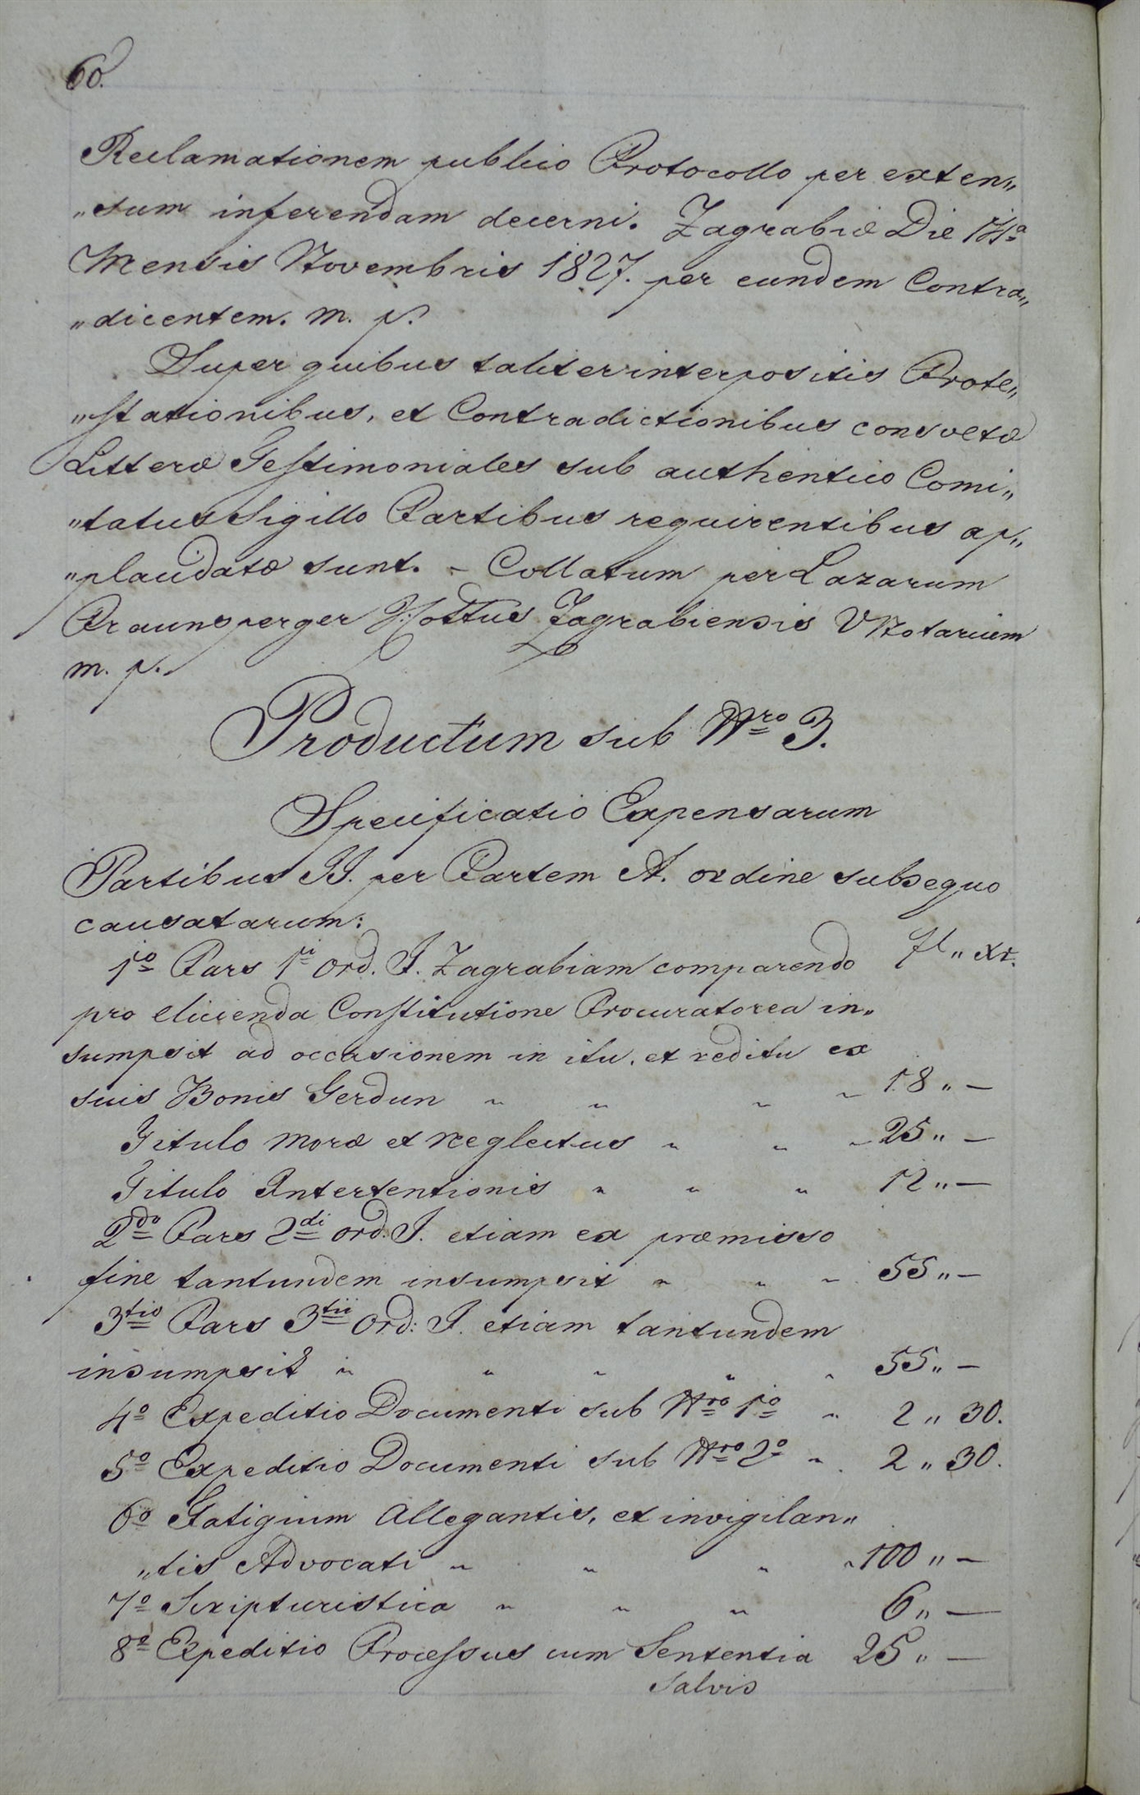 60.
Reclamationem publico Protocollo per exten„
„sum inferendam decerni. Zagrabiæ Die 17ª
Mensis Novembris 1827. per eundem Contra„
„dicentem. m. p.
Super quibus taliter interpositis Prote„
„stationibus, et Contradictionibus consvetæ
Litteræ Testimoniales sub authentico Comi„
„tatus Sigillo Partibus requirentibus ap„
„plaudatæ sunt. - Collatum per Lazarum
Praunsperger Zagrabiensis V Notarium
m. p.
Productum sub Nro 3.
Specificatio Expensarum
Partibus II. per Partem A. ordine subsequo
causatarum:
1º Pars 1i ord. I. Zagrabiam comparendo fl „ xr.
pro elicienda Constitutione Procuratorea in„
sumpsit ad occasionem in itu, et reditu ex
suis Bonis Gerdun „ „ „ „ 18 „ —
Titulo moræ et neglectus „ „ „ 25 „ —
Titulo Intertentionis „ „ „ 12 „ —
2do Pars 2di ord. I. etiam ex præmisso
fine tantundem insumpsit „ „ „ 55 „ —
3tio Pars 3tii Ord: I. etiam tantundem
insumpsit „ „ „ „ „ 55 „ —
4º Expeditio Documenti sub Nro 1º „ 2 „ 30.
5º Expeditio Documenti sub Nro 2º „ 2 „ 30.
6º Fatigium Allegantis, et invigilan„
„tis Advocati „ „ „ „ 100 „ —
7º Scripturistica „ „ „ 6 „ —
8º Expeditio Processus cum Sententia 25 „ —
Salvis